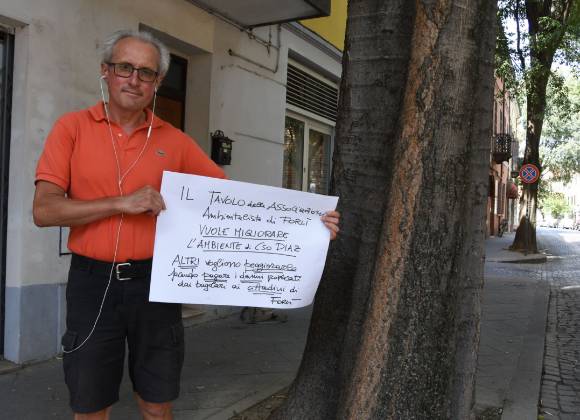 IL TAVOLO delle ASSOCIAZIONI
Ambientaliste di FORLÌ
VUOLE MIGLIORARE
L'AMBIENTE di C.so DIAZ
ALTRI vogliono peggiorarlo
facendo pagare i danni
dai tagliari ai cittadini di
FORLÌ